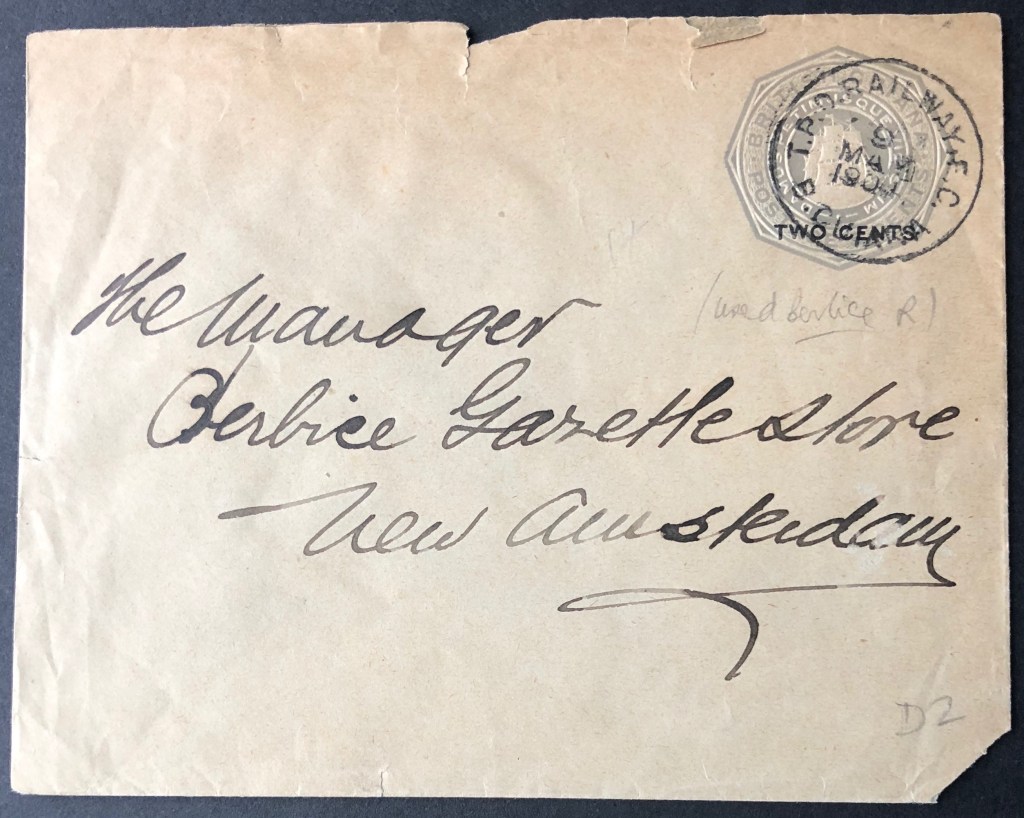 T.P.O RAILWAY. E.C.
9
MA
B. GUIANA
TWO CENTS
The Manager
(used Berbice R)
Berbice Gazette Store
New Amsterdam
D2